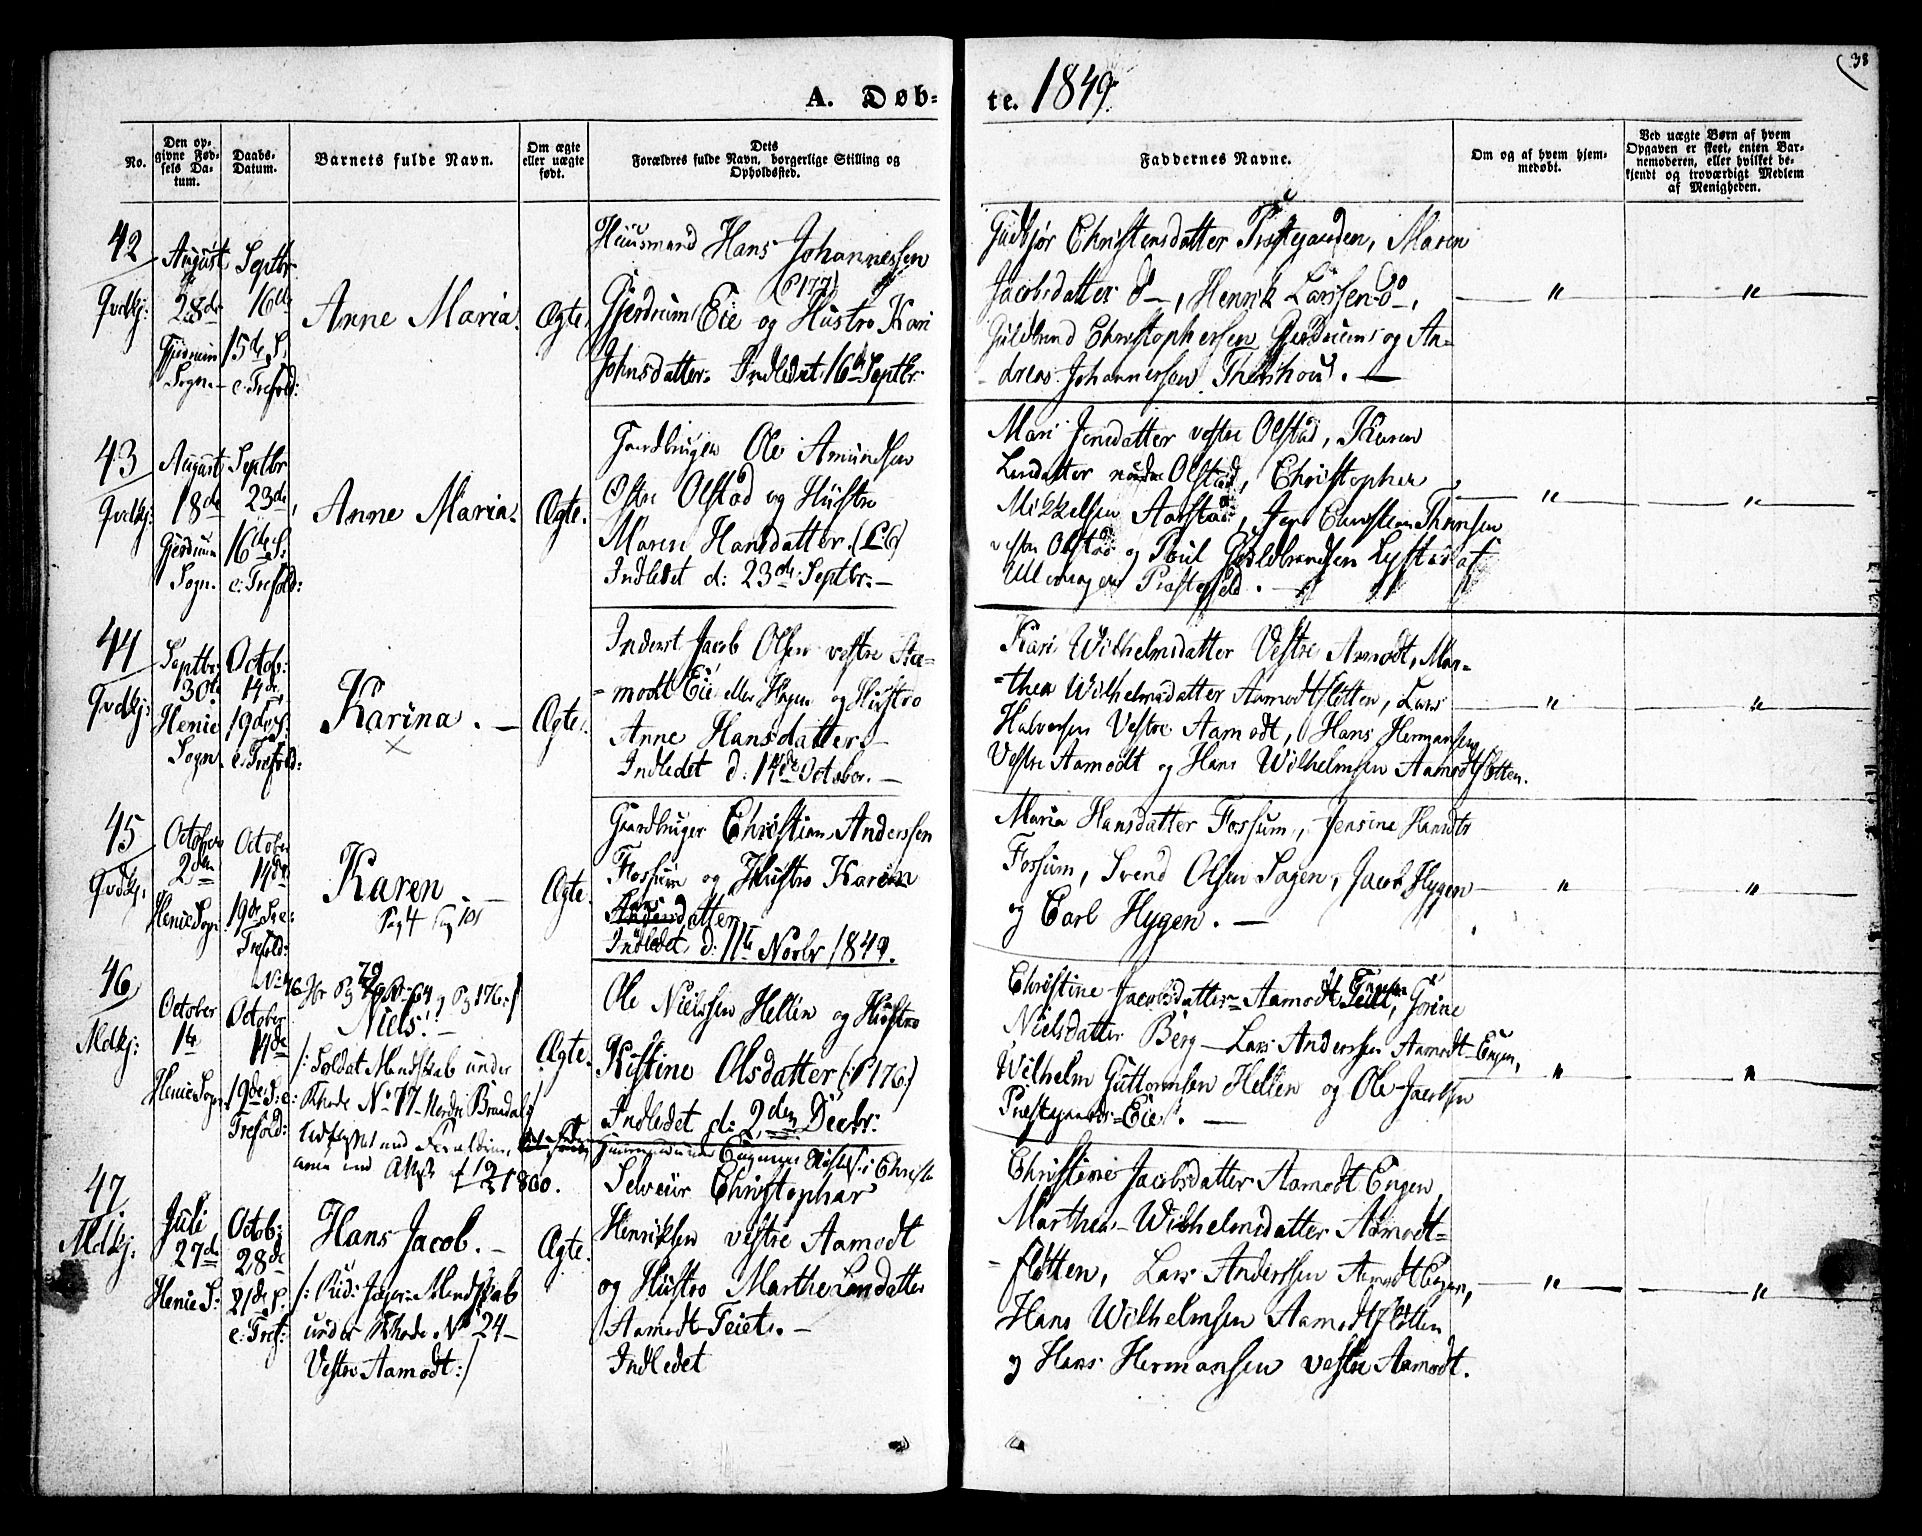 38
A. Døb-
te. 1849.
No.
Den op-
givne Fød-
sels Da-
tum.
Daabs-
Datum.
Barnets fulde Navn.
Om ægte
eller uægte
født.
Dets
Forældres fulde Navn, borgerlige Stilling og
Opholdssted.
Faddernes Navne.
Om og af hvem hjem-
medøbt.
Ved uægte Børn af hvem
Opgaven er skeet, enten Bar-
nemoderen, eller hvilket be-
kjendt og troværdigt Medlem
af Menigheden.
42
Qvdkj:
August
28de
Gjerdrum
Sogn.
Septbr
16de
15de S.
e: Trefold:
Anne Maria.
Ægte.
Huusmand Hans Johannessen
(P 177)
Gjerdrum Eie og Hustro Kari
Johnsdatter. Indledet 16de Septbr.
Gudbjør Christensdatter Præstegaarden, Maren
Jacobsdatter do, Henrik Larssen do,
Guldbrand Christophersen Gjerdrum og An-
dreas Johannessen
43
Qvdkj:
August
18de
Gjerdrum
Sogn.
Septbr
23de
16de S:
e: Trefold:
Anne Maria.
Ægte.
Gaardbruger Ole Amundsen
Østre Olstad og Hustro
Maren Hansdatter.
Indledet d: 23de Septbr.
Mari Jensdatter vestre Olstad, Karen
Larsdatter nordre Olstad, Christopher
Mikkelsen Aarstad, Jens Christian
vestre Olstad og Poul Guldbrandsen af
Ullensager Præstegjeld.
44
Qvdkj:
Septbr
30te
Henie
Sogn
Octob:
14de
19de S:
e: Trefold:
Karina.
Ægte.
Inderst Jacob Olsen vestre Aa-
modt Eie eller Hagen og Hustro
Anne Hansdatter.
Indledet d: 14de October.
Kari Wilhelmsdatter Vestre Aamodt, Mar-
thea Wilhelmsdatter Aamodtfløtten, Lars
Halvorsen Vestre Aamodt, Hans Hermansen
Vestre Aamodt og Hans Wilhelmsen Aamodtfløtten.
45
Qvdkj.
October
2den
Henie Sogn
October
14de
19de S. e:
Trefold:
Karen
Pag 4 Pag 101
Ægte.
Gaardbruger Christian Anderssen
Fossum og Hustro Karen
Larsdatter
Indledet d: 11te Novbr 1849.
Maria Hansdatter Fossum, Jensine Hansdtr
Fossum, Svend Olsen Sagen, Jacob Hygen
og Carl Hygen.
46
Mdkj:
October
1te
Henie Sogn
No 46
October
14de
19de S. e:
Trefold:
Pg 176
Niels.
/: Soldat Mandskab under
Rhode No 77 Nordre Brædal:
1860.
Ægte.
Ole Nielssen Hellen og Hustro
Kistine Olsdatter (P 176)
Indledet d: 2den Decbr.
Christine Jacobsdatter Aamodt Engen, Gorine
Nielsdatter Berg, Lars Anderssen Aamodt-Engen,
Wilhelm Guttormsen Hellen og Ole Jacobsen
Præstegaards-Eiet.
47.
Mdkj:
Juli
27de
Henie S:
Octob:
28de
21de S.
e: Tref:
Hans Jacob.
/: Rid: Jæger: Mandskab
under Rhode No 24
Vestre Aamodt :/
Ægte.
Selveier Christopher
Henriksen vestre Aamodt
og Hustro Marthe Larsdatter
Aamodt-Teiet.
Indledet
Christine Jacobsdatter Aamodt Engen
Marthea Wilhelmsdatter Aamodt-
fløtten, Lars Anderssen Aamodt Engen,
Hans Wilhelmsen Aamodtfløtten
og Hans Hermansen vestre Aamodt.